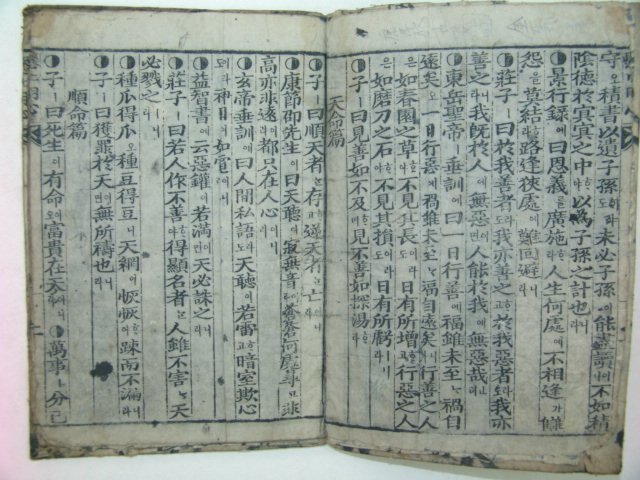 守오積書以遺子孫이라도未必子孫이能盡讀이니不如積
陰德於冥冥之中야以爲子孫之計也니라
景行錄에曰恩義을廣施라人生何處에不相逢가讎
怨을莫結라路逢狹處에難回避니라
莊子ㅣ曰於我善者도我亦善之고於我惡者라도我亦
善之니라我旣於人에無惡이면人能於我에無惡哉
東岳聖帝ㅣ垂訓에曰一日行善에福雖未至나禍自
遠矣오一日行惡에禍雖未至나福自遠矣니行善之人
如春園之草야不見其長이라도日有所增고行惡之人
如磨刀之石야不見其損이라도日有所虧니라
子ㅣ曰見善如不及며見不善如探湯라
天命篇
子ㅣ曰順天者존存고逆天者亡이니라
康節邵先生이曰天聽이寂無音蒼蒼何處尋고非
高亦非遠이라都只在人心이니라
玄帝垂訓에曰人間私語도天聽이若雷고暗室欺心
도神目이如電이니라
益智書에云惡鑵이若滿면天必誅之니라
莊子ㅣ曰若人作不善야得顯名者人雖不害나天
必戮之니라
種瓜得瓜오種豆得豆니天網이恢恢야疎而不漏니라
順命篇
子ㅣ曰獲罪於天이면無所禱也니라
子ㅣ曰先生이有命이오富貴在天이니라萬事ㅣ分己